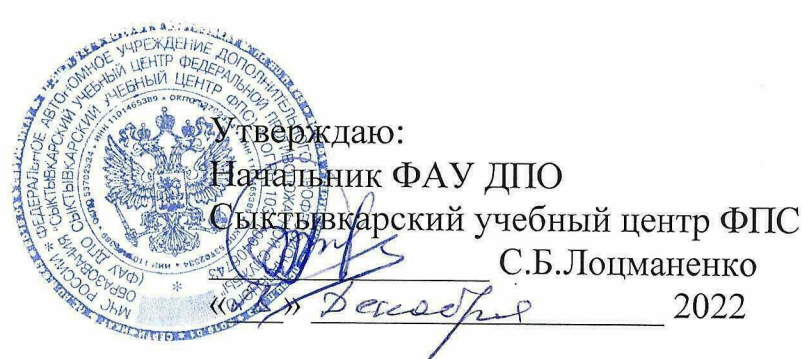 Утверждаю:
Начальник ФАУ ДПО
Сыктывкарский учебный центр ФПС
С.Б.Лоцманенко
« » Декабря 2022
МЧС РОССИИ * ФЕДЕРАЛЬНОЕ АВТОНОМНОЕ УЧРЕЖДЕНИЕ ДОПОЛНИТЕЛЬНОГО
ОБРАЗОВАНИЯ "СЫКТЫВКАРСКИЙ УЧЕБНЫЙ ЦЕНТР ФЕДЕРАЛЬНОЙ
(ФАУ ДПО СЫКТЫВКАРСКИЙ УЧЕБНЫЙ ЦЕНТР ФПС)
ИНН 1101465389